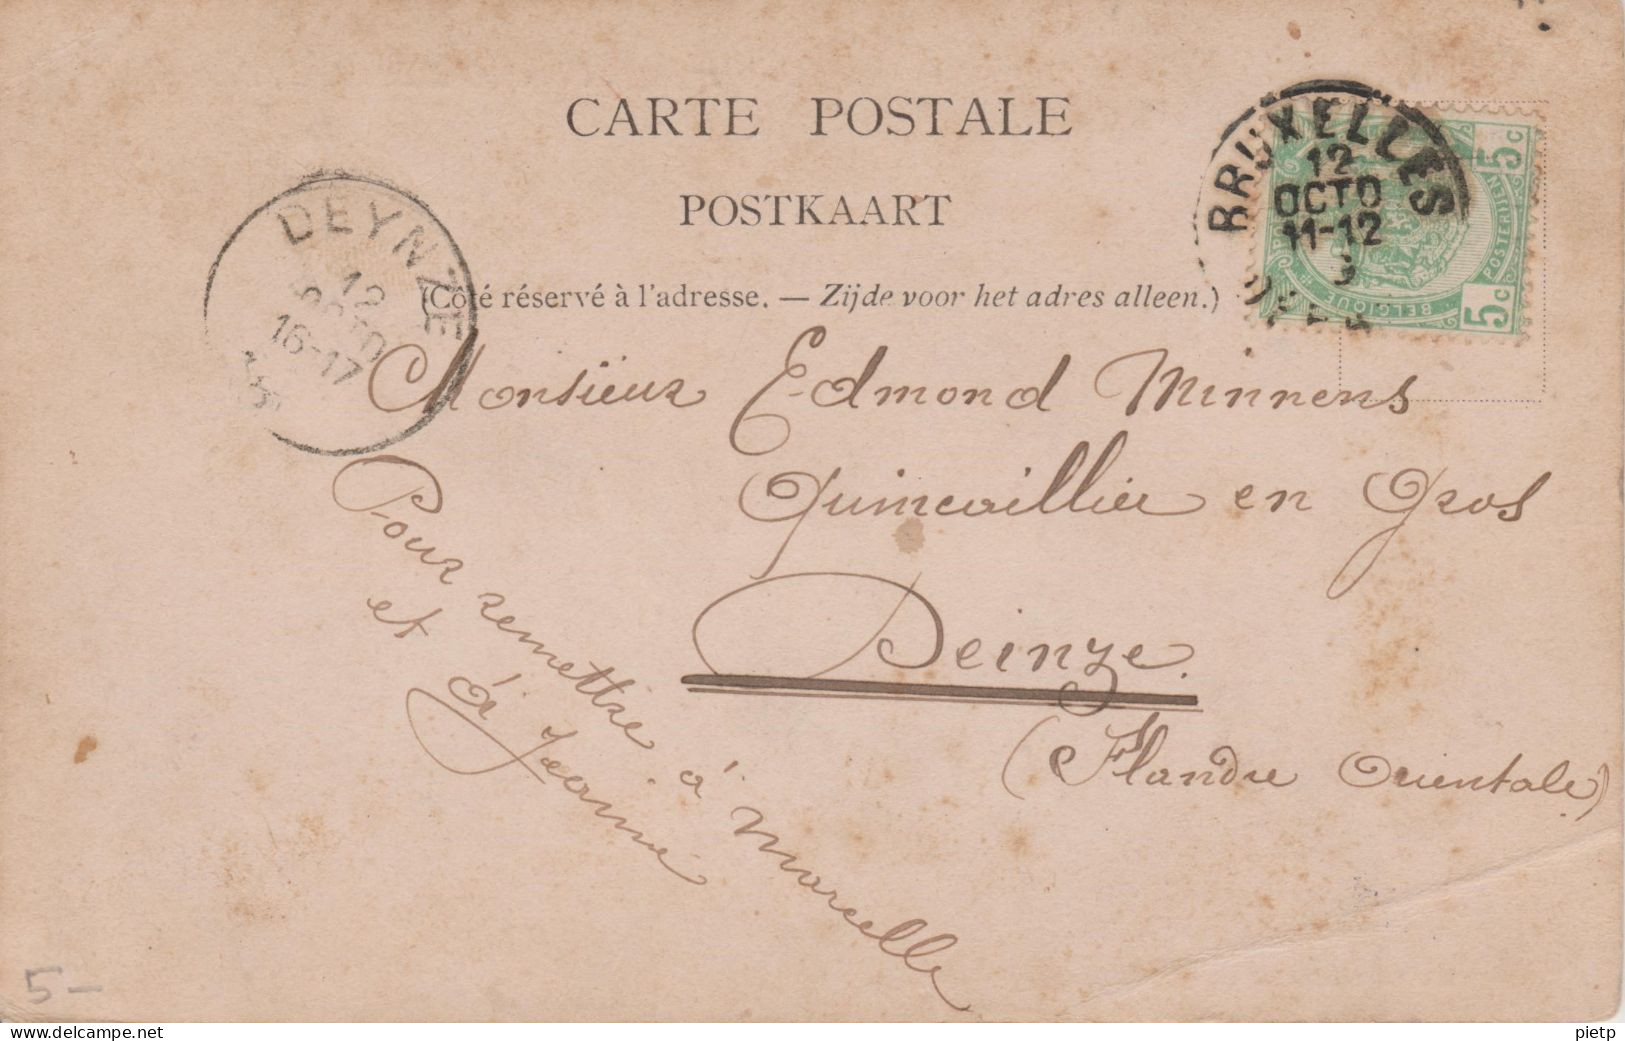 CARTE POSTALE
POSTKAART
(Côté réservé à l'adresse. — Zijde voor het adres alleen.)
BRUXELLES
12
OCTO
11-12
3
5c
5c
POSTERIJEN
BELGIQUE
DEYNZE
12
OCTO
16-17
Monsieur Edmond Minnens
Quincaillier en Gros
Deinze.
(Flandre Orientale)
Pour remettre à Marcelle
et à Jeanne
5-
www.delcampe.net
pietp